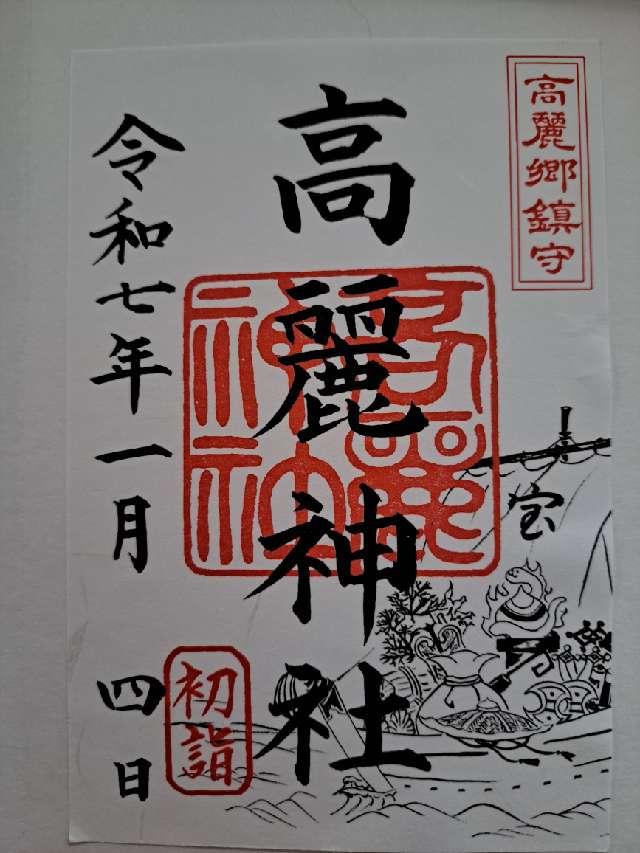 高麗郷鎮守
宝
高麗神社
高麗神社
初詣
令和七年一月四日